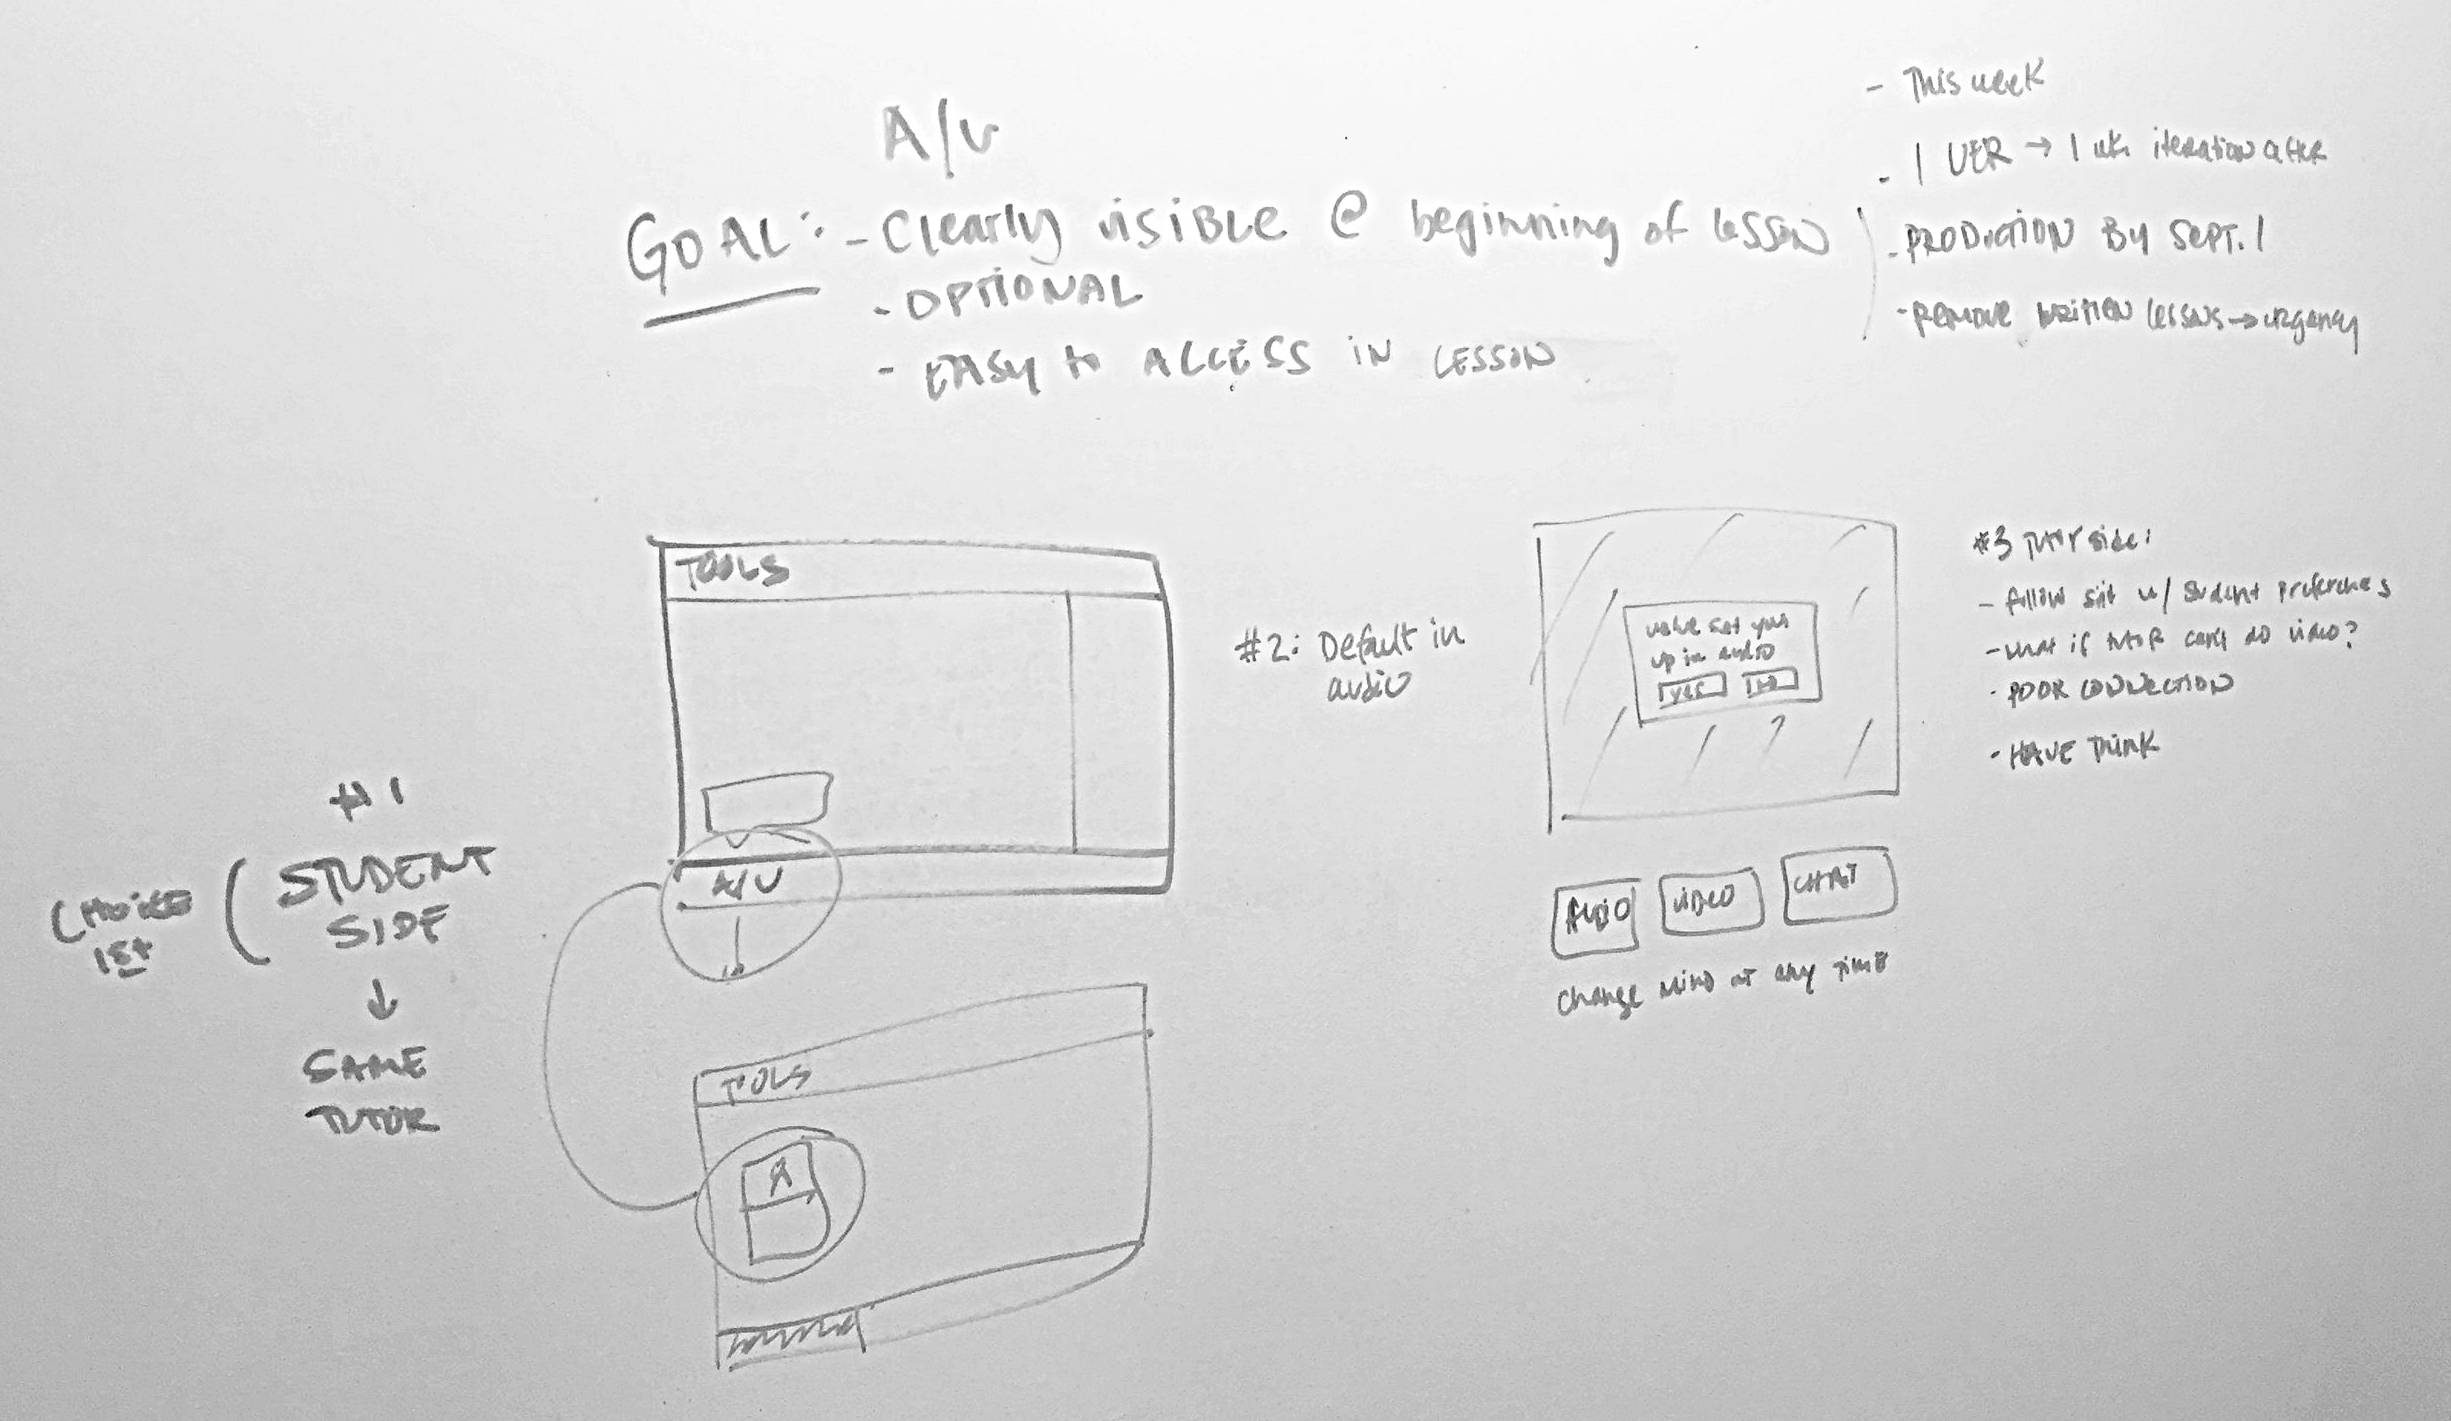 A/V
GOAL: - Clearly visible @ beginning of lesson
- OPTIONAL
- EASY to ACCESS IN LESSON
- This week
- 1 VER → 1 wk iteration after
- PRODUCTION BY SEPT. 1
- REMOVE WRITTEN LESSONS → urgency
#1
CHOICE
1st
STUDENT
SIDE
↓
SAME
TUTOR
TOOLS
A/V
TOOLS
A
#2: Default in
audio
we've set you
up in audio
yes
no
AUDIO
VIDEO
CHAT
Change mind at any time
#3 Tutor side:
- follow suit w/ student preferences
- what if tutor can't do video?
- POOR CONNECTION
- HAVE THINK